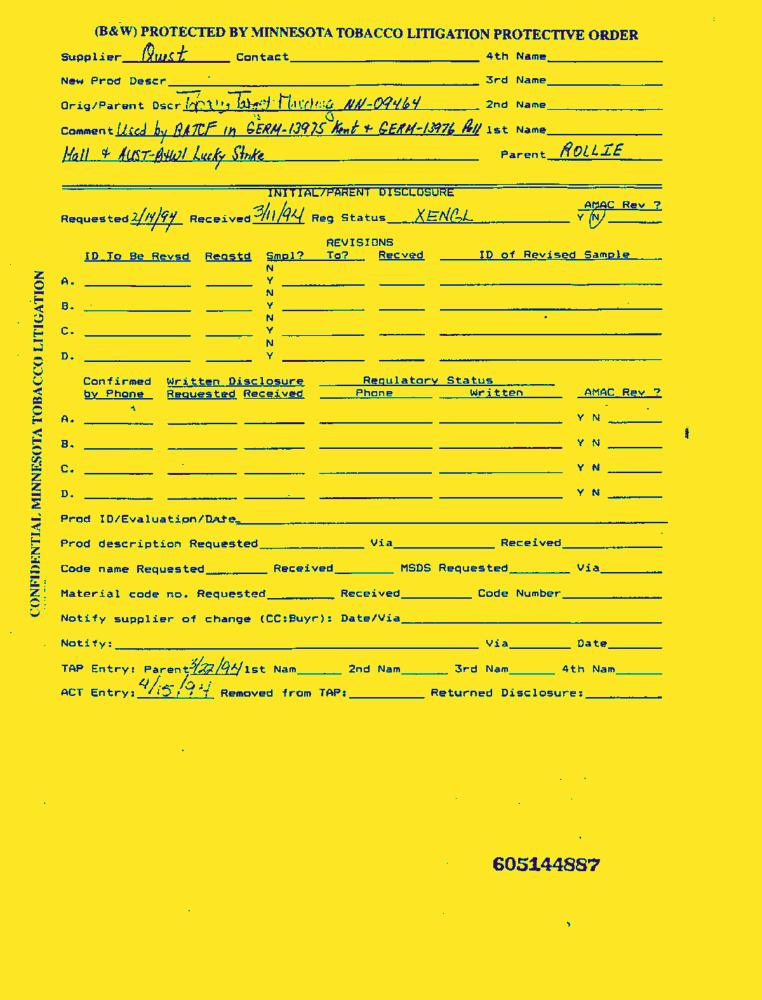 (B&W) PROTECTED BY MINNESOTA TOBACCO LITIGATION PROTECTIVE ORDER
Supplier Qust Contact 4th Name
New Prod Descr 3rd Name
Orig/Parent Dscr NN-09464 2nd Name
Comment Used by BATCF in GERM-13975 Kent + GERM-13976 Pall 1st Name
Mall + AUST-B+W1 Lucky Strike Parent ROLLIE
INITIAL/PARENT DISCLOSURE
AMAC Rev ?
Requested 2/14/94 Received 3/11/94 Reg Status XENGL Y N
REVISIONS
ID To Be Revsd Reqstd Smpl? To? Recved ID of Revised Sample
N
A. Y
N
B. Y
N
C. Y
N
D. Y
Confirmed Written Disclosure Regulatory Status
by Phone Requested Received Phone Written AMAC Rev ?
A. Y N
B. Y N
C. Y N
D. Y N
Prod ID/Evaluation/Date
Prod description Requested Via Received
Code name Requested Received MSDS Requested Via
Material code no. Requested Received Code Number
Notify supplier of change (CC:Buyr): Date/Via
Notify: Via Date
TAP Entry: Parent 3/22/94 1st Nam 2nd Nam 3rd Nam 4th Nam
ACT Entry: 4/15/94 Removed from TAP: Returned Disclosure:
CONFIDENTIAL MINNESOTA TOBACCO LITIGATION
605144887